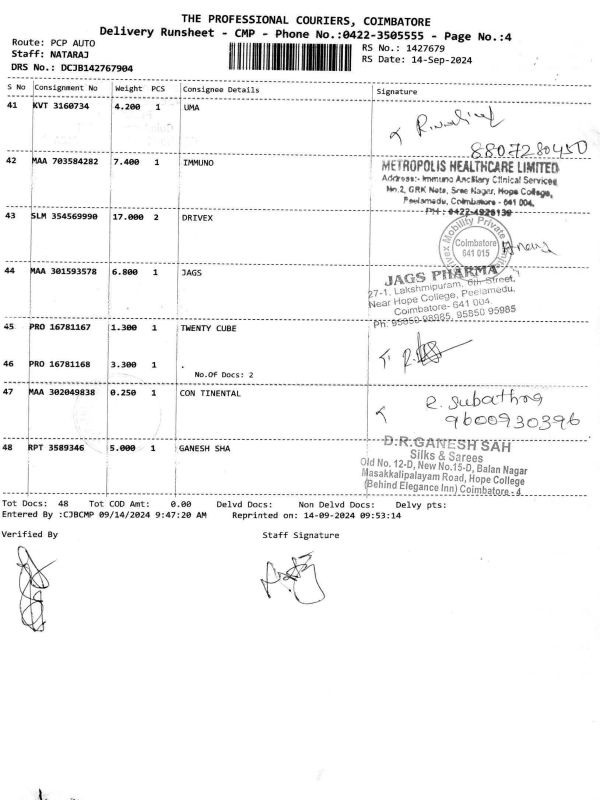 THE PROFESSIONAL COURIERS, COIMBATORE
Delivery Runsheet - CMP - Phone No.:0422-3505555 - Page No.:4
Route: PCP AUTO
RS No.: 1427679
Staff: NATARAJ
RS Date: 14-Sep-2024
DRS No.: DCJB142767904
S No Consignment No Weight PCS Consignee Details Signature
41 KVT 3160734 4.200 1 UMA
8807280450
42 MAA 703584282 7.400 1 IMMUNO
METROPOLIS HEALTHCARE LIMITED
Address:- Immuno Ancillary Clinical Services
No.2, GRK Nats, Sree Nagar, Hope College,
Peelamedu, Coimbatore - 641 004.
PH: 0422-4920139
43 SLM 354569990 17.000 2 DRIVEX
Drivex Mobility Private
Coimbatore
641 015
44 MAA 301593578 6.800 1 JAGS
JAGS PHARMA
27-1, Lakshmipuram, 6th Street,
Near Hope College, Peelamedu,
Coimbatore- 641 004.
Ph: 95850 98985, 95850 95985
45 PRO 16781167 1.300 1 TWENTY CUBE
46 PRO 16781168 3.300 1 .
No.Of Docs: 2
47 MAA 302049838 0.250 1 CON TINENTAL
9600930396
48 RPT 3589346 5.000 1 GANESH SHA
D.R.GANESH SAH
Silks & Sarees
Old No. 12-D, New No.15-D, Balan Nagar
Masakkalipalayam Road, Hope College
(Behind Elegance Inn) Coimbatore - 4
Tot Docs: 48 Tot COD Amt: 0.00 Delvd Docs: Non Delvd Docs: Delvy pts:
Entered By :CJBCMP 09/14/2024 9:47:20 AM Reprinted on: 14-09-2024 09:53:14
Verified By Staff Signature